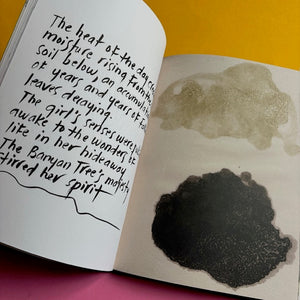 The heat of the day
moisture rising from the
soil below, an accumulation
of years and years of
leaves decaying.
The girl's senses were
awake to the wonders of
life in her hideaway
The Banyan Tree's majesty
stirred her spirit